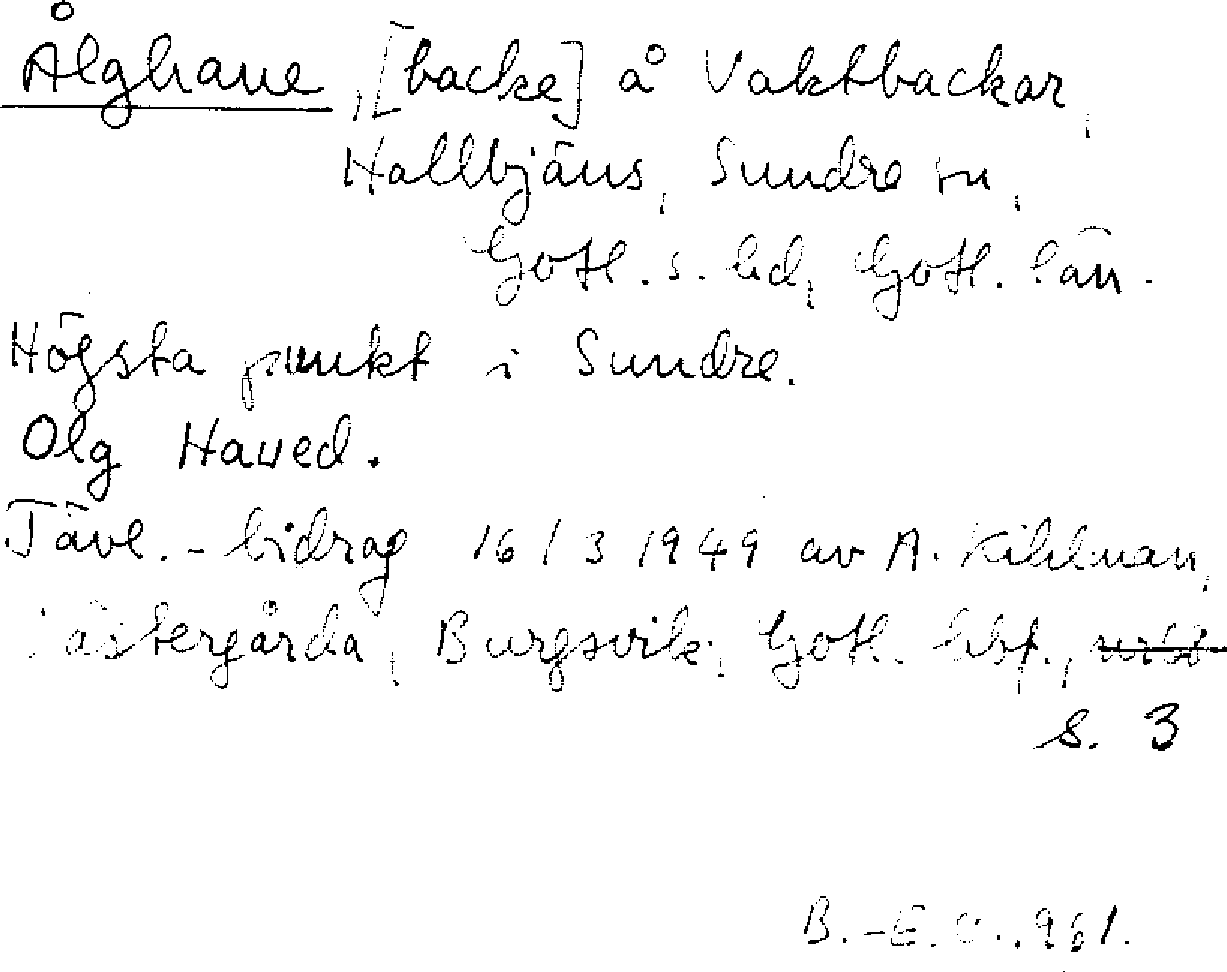 Ålghaue, [backe] å Vaktbackar,
Hallbjäns, Sundre sn,
Gotl. s. hd, Gotl. län.
Högsta punkt i Sundre.
Olg Haued.
Tävl.-bidrag 16/3 1949 av A. Kihlman,
Västergårda, Burgsvik, Gotl. hbf.,
s. 3
B.-E.